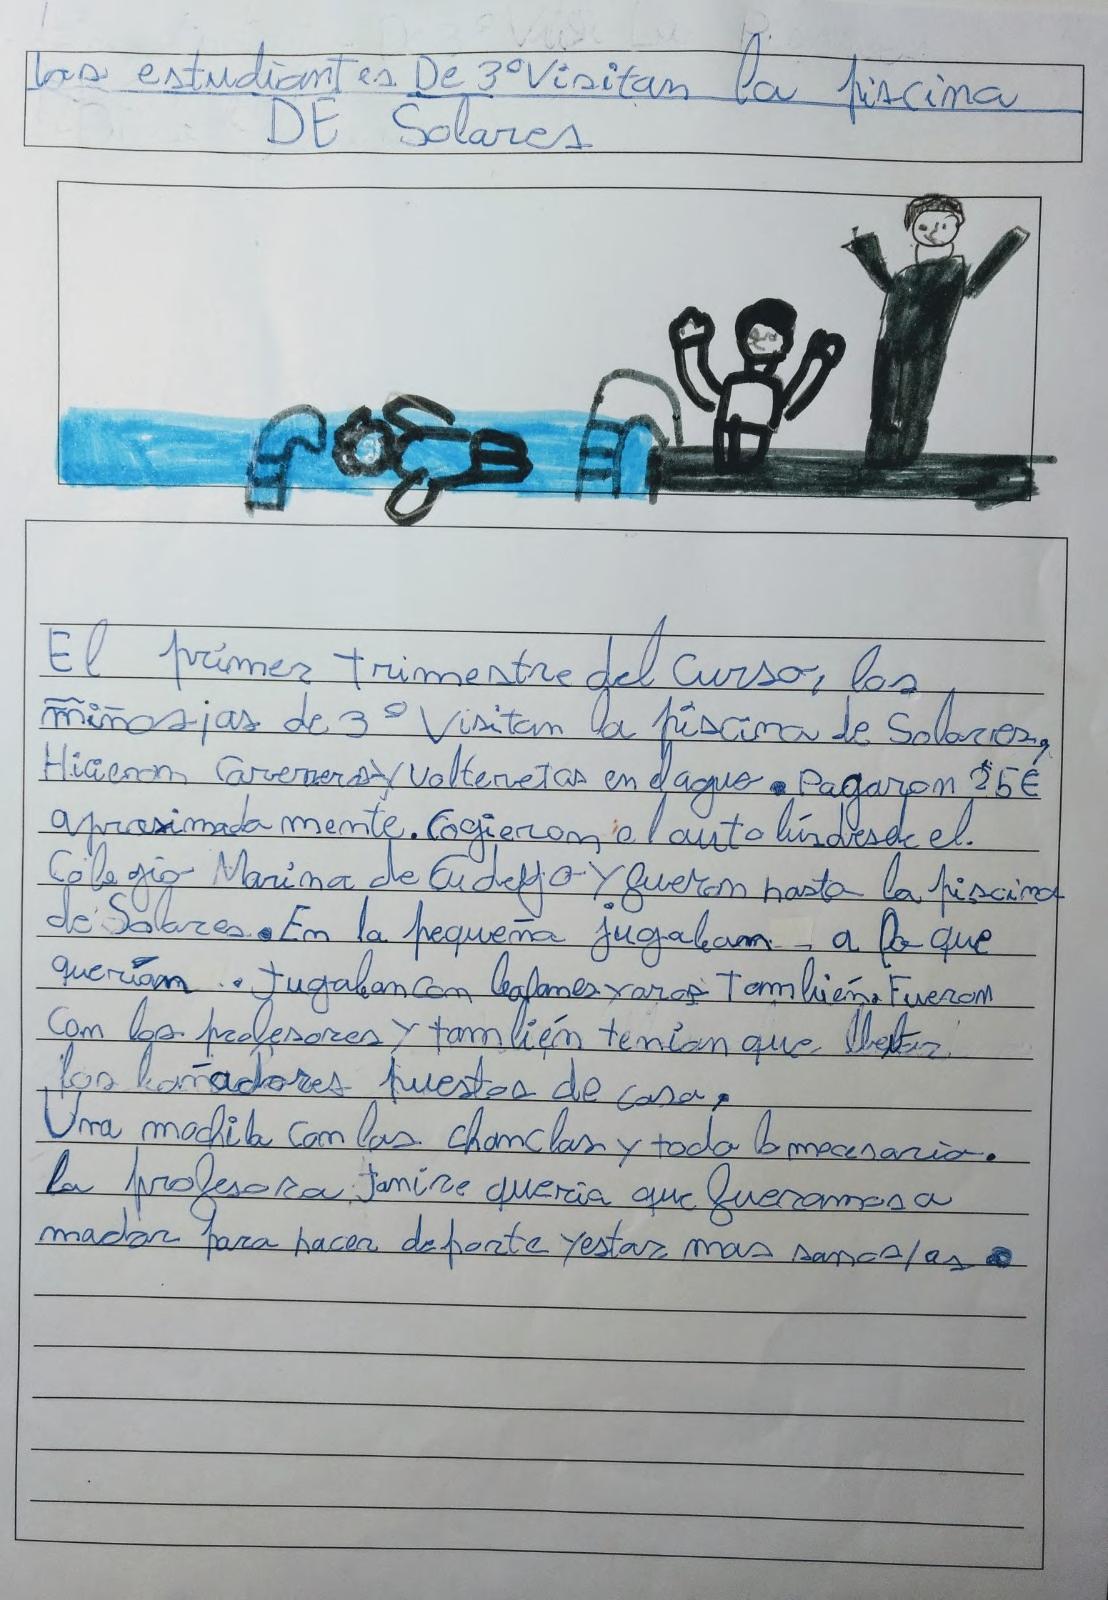 Los estudiantes De 3º Visitan la piscina
DE Solares
El primer trimestre del Curso, los
niños/as de 3º Visitan la piscina de Solares,
Hicieron Carreras y volteretas en el agua. Pagaron 25€
aprosimadamente. Cogieron el autobús desde el
Colegio Marina de Cudeyo y fueron hasta la piscina
de Solares. En la pequeña jugaban a lo que
querían. Jugaban con balones y aros También. Fueron
Con los profesores y también tenían que llebar
los bañadores puestos de casa,
Una mochila con las chanclas y todo lo necesario.
la profesora Janire quería que fueramos a
nadar para hacer deporte y estar mas sanos/as.